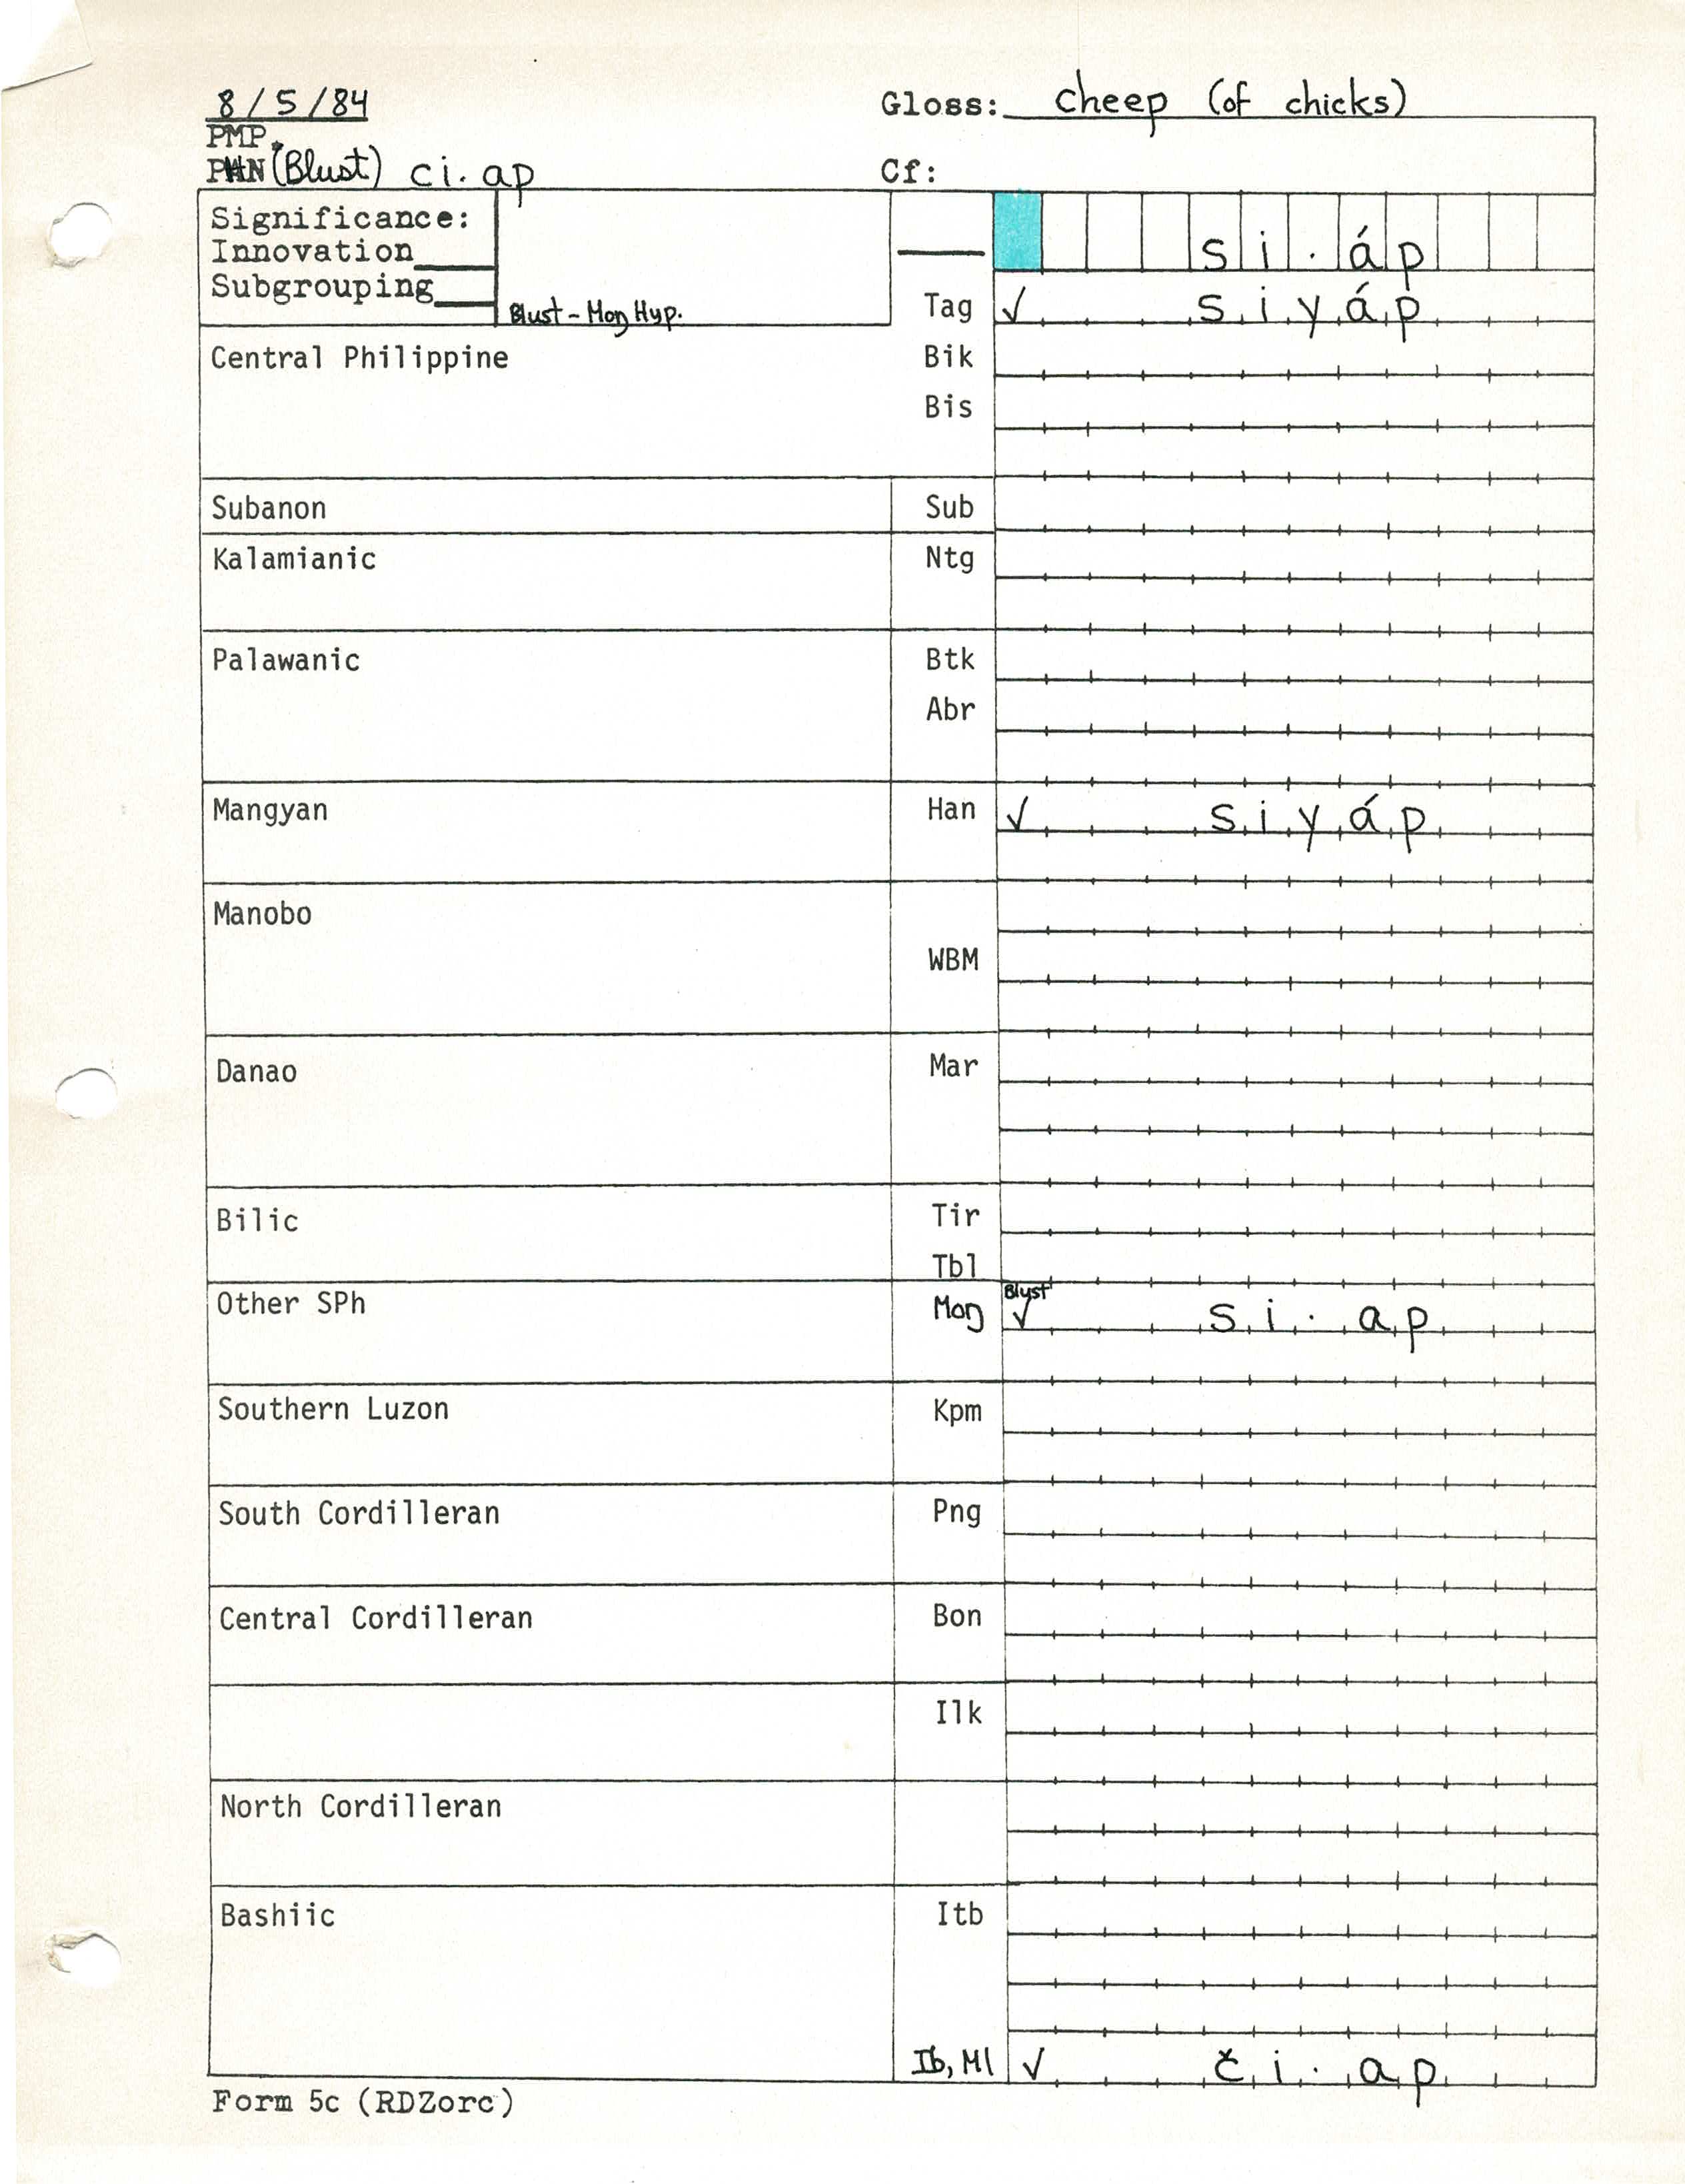 8/5/84
Gloss: cheep (of chicks)
PMP
PAN (Blust) ci.ap
Cf:
Significance:
Innovation
Subgrouping
Blust - Mon Hyp.
si.áp
Tag ✓ siyáp
Central Philippine
Bik
Bis
Subanon
Sub
Kalamianic
Ntg
Palawanic
Btk
Abr
Mangyan
Han ✓ siyáp
Manobo
WBM
Danao
Mar
Bilic
Tir
Tbl
Other SPh
Blust
✓ si.ap
Southern Luzon
Kpm
South Cordilleran
Png
Central Cordilleran
Bon
Ilk
North Cordilleran
Bashiic
Itb
Ib, Ml ✓ či.ap
Form 5c (RDZorc)